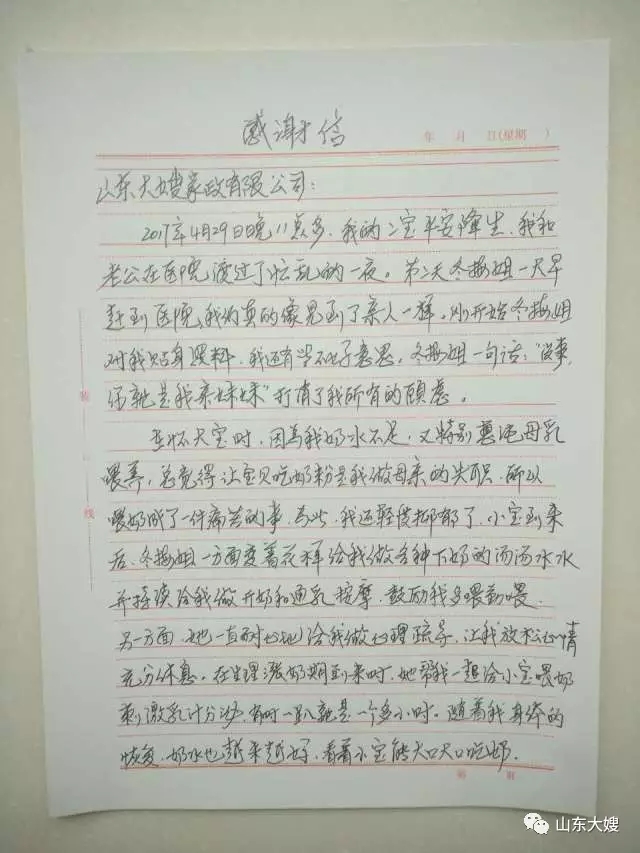 感谢信
年 月 日(星期 )
山东大嫂家政有限公司:
2017年4月29日晚11点多,我的二宝平安降生,我和
老公在医院渡过了忙乱的一夜。第二天冬梅姐一大早
赶到医院,我们真的像见到了亲人一样,刚开始冬梅姐
对我贴身照料,我还有些不好意思,冬梅姐一句话:“没事,
你就是我亲妹妹”打消了我所有的顾虑。
在怀大宝时,因为我奶水不足,又特别喜纯母乳
喂养,总觉得让宝贝吃奶粉是我做母亲的失职,所以
喂奶成了一件痛苦的事,为此,我还轻度抑郁了,小宝到来
后,冬梅姐一方面变着花样给我做各种下奶的汤汤水水
并持续给我做开奶和通乳按摩,鼓励我多喂勤喂,
另一方面,她一直耐心地给我做心理疏导,让我放松心情
充分休息,在生理涨奶期到来时,她帮我一起给小宝喂奶
刺激乳汁分泌,有时一趴就是一个多小时。随着我身体的
恢复,奶水也越来越好,看着小宝能大口大口吃奶,
第 页
山东大嫂